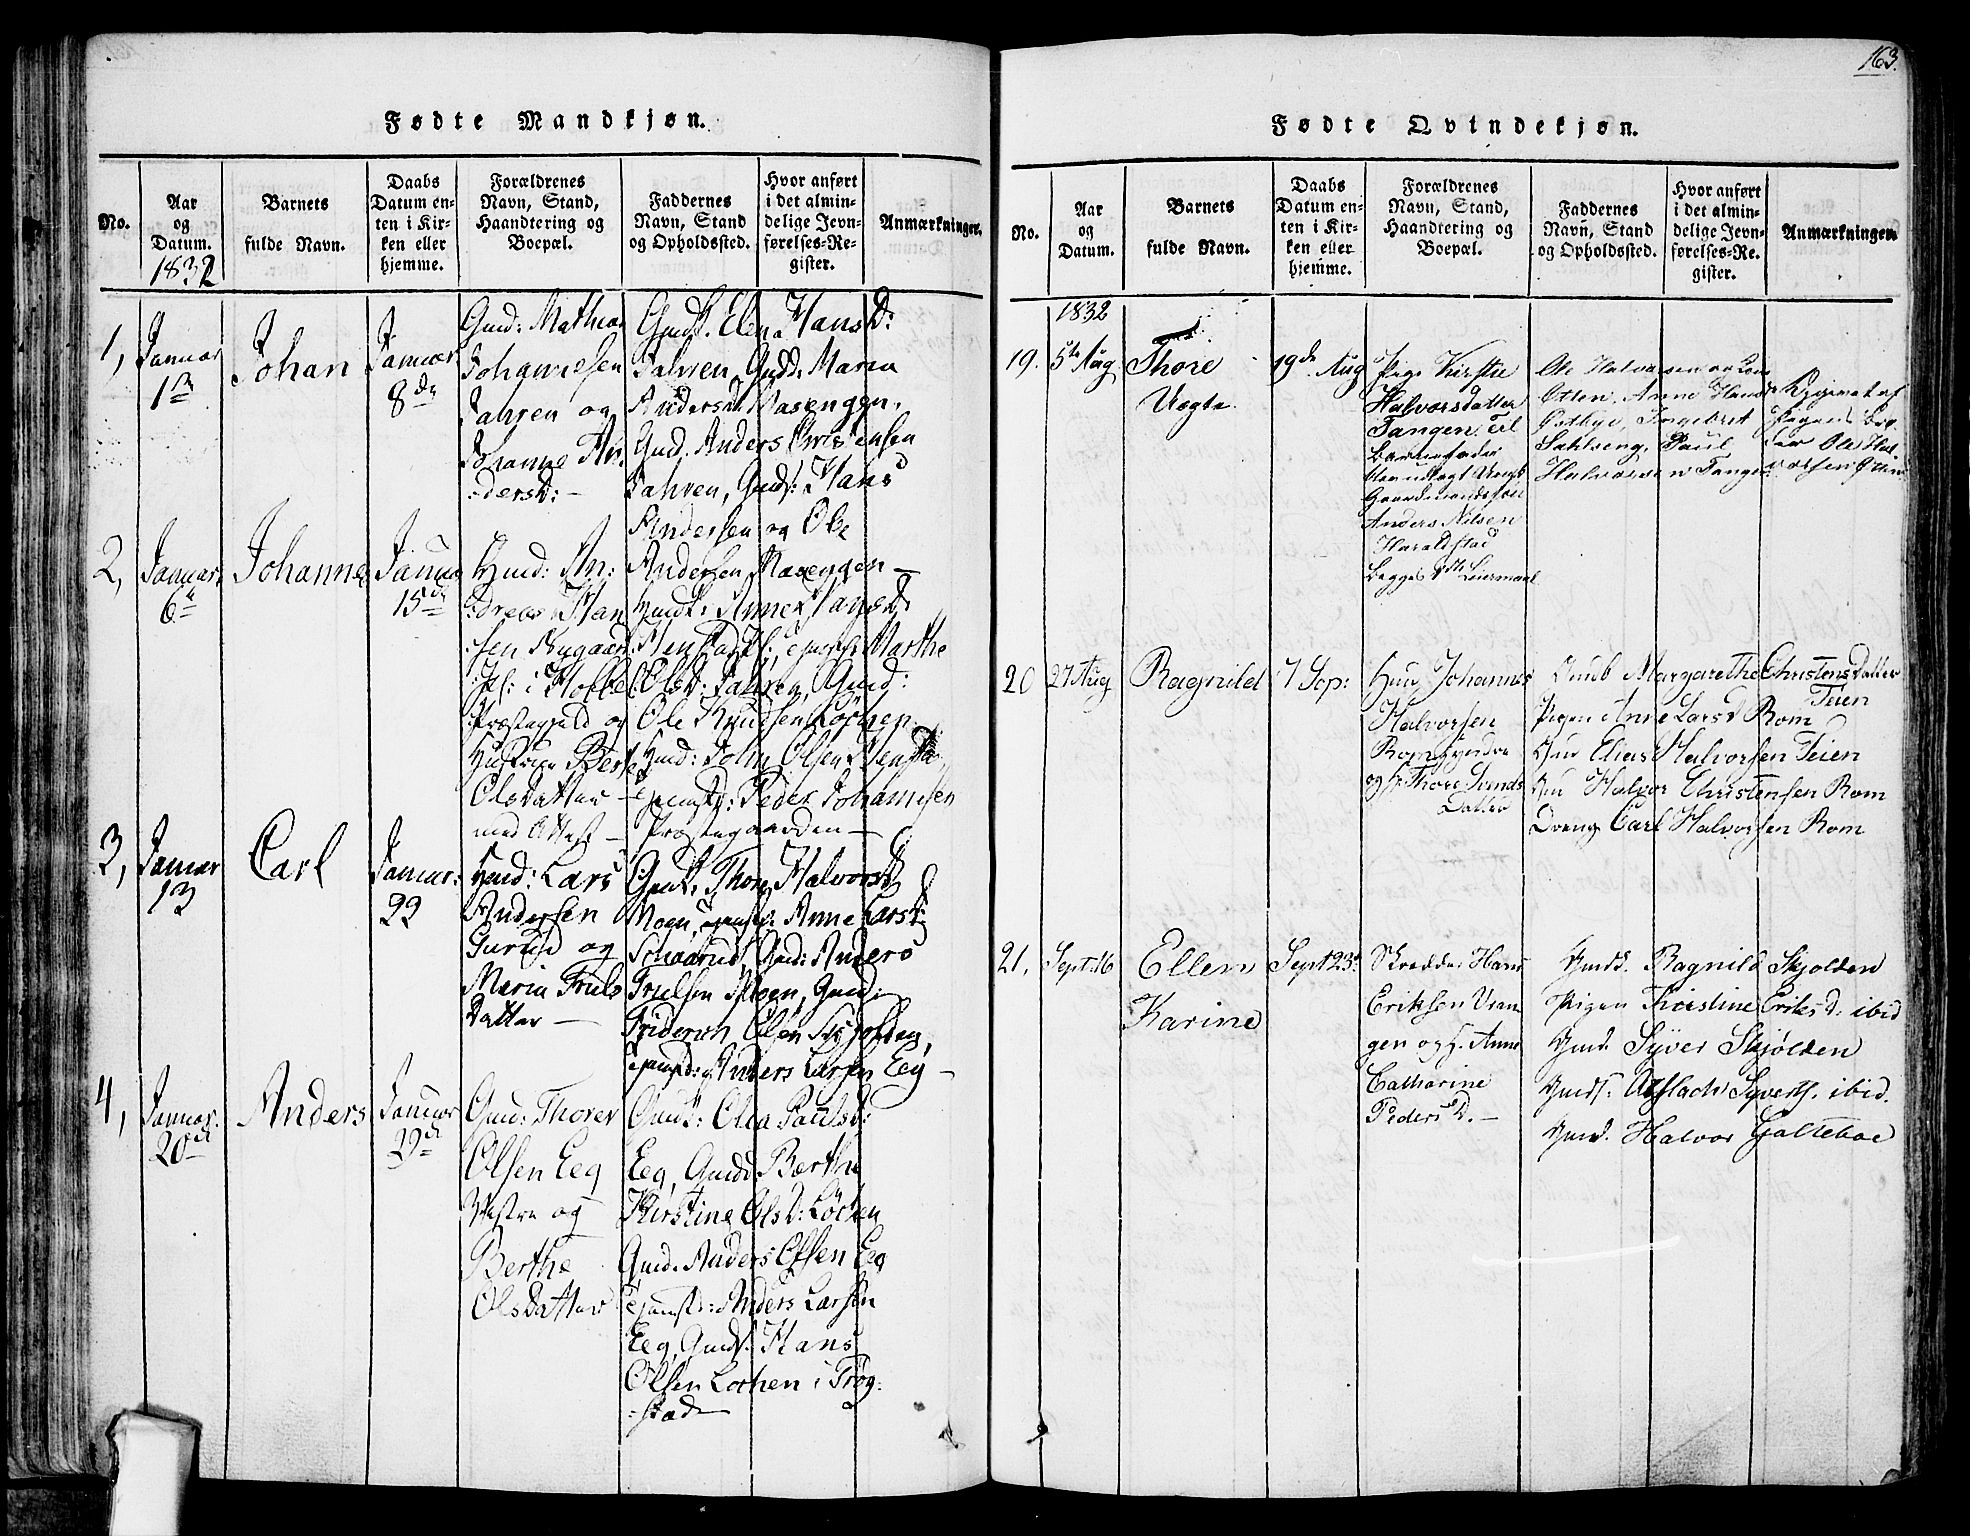 163.
Fødte Mandkjøn.
No.
Aar
og
Datum.
1832
Barnets
fulde Navn.
Daabs
Datum en-
ten i Kir-
ken eller
hjemme.
Forældrenes
Navn, Stand,
Haandtering og
Boepæl.
Faddernes
Navn, Stand
og Opholdssted.
Hvor anført
i det almin-
delige Jevn-
førelses-Re-
gister.
Anmærkninger.
1,
Januar
1
Johan
Januar
8de
Gmd: Mathias
Johannesen
Sahren og
Johanne An-
dersd: -
Gmdk. Elen Hansd:
Sahren, Gmdd. Maria
Andersd. Masengen.
Gmd. Anders Christensen
Sahren, Gmds: Hans
Andersen og Ole
Andersen Masengen -
2,
Januar
6te
Johannes
Januar
15de
Hmd: An-
dreas Han
sen
i Hobbel
Præstegjeld og
Hustrue Berte
Olsdatter -
med Attest -
Hmdk: Anne Hansd:
Marthe
Olsd: Sahren, Gmd:
Ole Knudsen Lochen
Hmd: John Olsen
Tjenestd: Peder Johannesen
Præstegaarden -
3,
Januar
13
Carl
Januar:
22
Hmd: Lars
Andersen
og
Maria Truls
Datter -
Gmdk. Thore Halvorsd
Moen, Tjenestp: Anne Larsd:
Gmd: Anders
Trulsen Moen, Gmd:
Friderich Olsen Skjolden,
Tjenestd: Anders Larsen Eeg -
4,
Januar.
20de
Anders
Januar
29de
Gmd: Thorer
Olsen Eeg
Vestre og
Berthe
Olsdatter
Gmdk: Olea Paulsd:
Eeg, Gmdd: Berthe
Kirstine Olsd: Löchen
Gmd. Anders Olsen Eeg
Tjenestd: Anders Larsen
Eeg, Gmds. Hans
Olsen Lochen i Trög-
stad
Fødte Qvindekjøn.
No.
Aar
og
Datum.
Barnets
fulde Navn.
Daabs
Datum en-
ten i Kir-
ken eller
hjemme.
Forældrenes
Navn, Stand,
Haandtering og
Boepæl.
Faddernes
Navn, Stand
og Opholdssted.
Hvor anført
i det almin-
delige Jevn-
førelses-Re-
gister.
Anmærkninger.
1832
19.
5te Aug
Thore
Uægte.
19de Aug
Pige Kirstie
Halvorsdatter
Tangen. Til
Barnefader
udlagt
Gaardmandssøn
Anders Nilsen
Haraldstad
Begges Leiermaal
Ole Halvorsen
Otten, Anne Hans
Østbye, Ingebret
Sahlseng, Paul
Halvorsen Tangen
Ole Hal-
vorsen Otten
20
27 Aug
Ragnild
7 Sep:
Huu Johannes
Halvorsen
Rom
og H. Thore
Datter
Margarethe Christensdatter
Teien
Pigen Anne Larsd Rom
Elias Halvorsen Teien
Halvor Christensen Rom
Dreng Carl Halvorsen Rom
21.
Sept: 16
Ellen
Karine
Sept 23:
Skrædder Hans
Eriksen Vran
gen og H. Anne
Catharine
Peders D. -
Gmdk. Ragnild Skjolden
Pigen Kirstine Eriks D: ibid
Gmd. Syver Skjölden
Gmds: Aslach Syverts. ibid.
Gmd. Halvor Galteboe